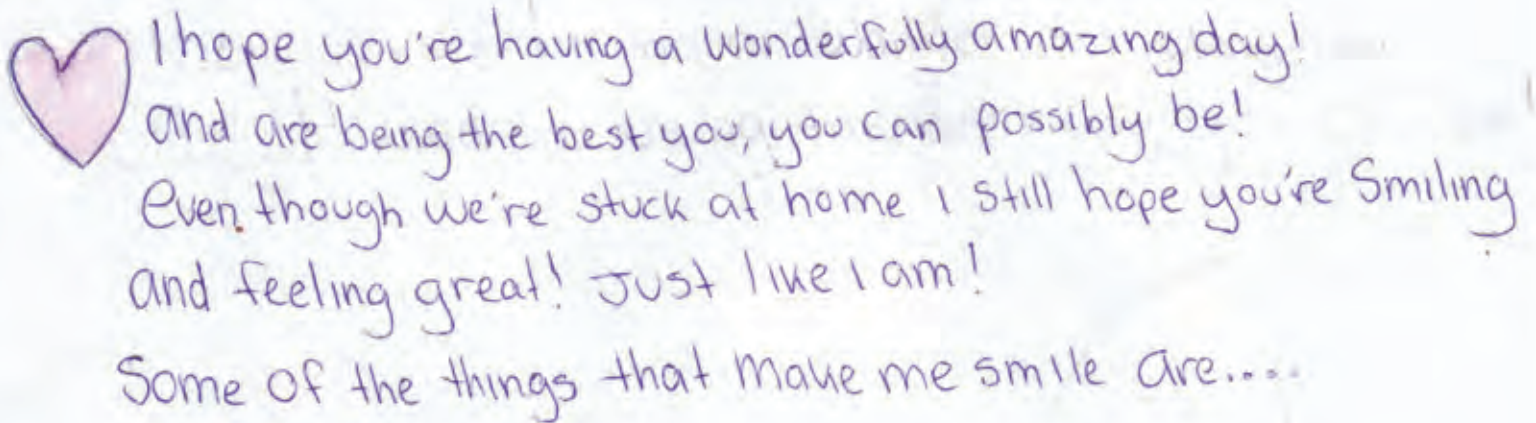 I hope you're having a wonderfully amazing day!
and are being the best you, you can possibly be!
even though we're stuck at home I still hope you're smiling
and feeling great! Just like I am!
Some of the things that make me smile are....